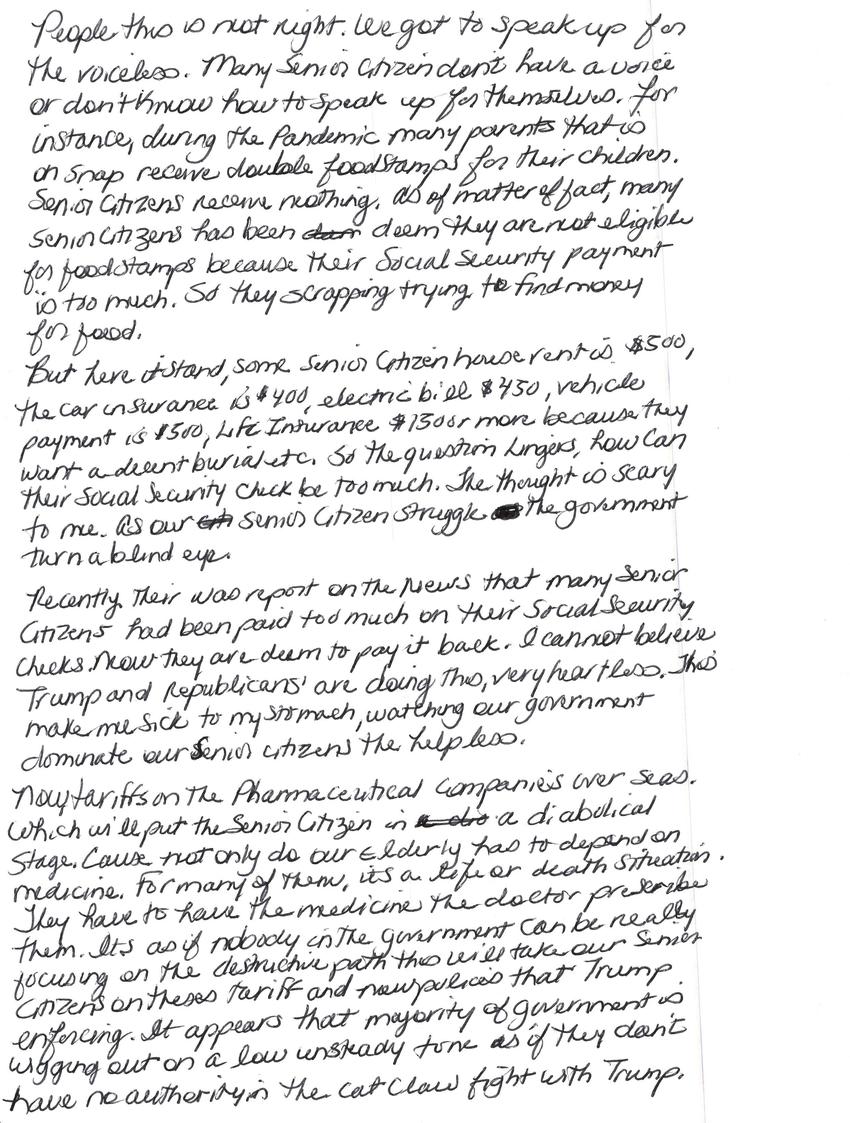 People this is not right. We got to speak up for
the voiceless. Many Senior Citizen don't have a voice
or don't know how to speak up for themselves. For
instance, during the Pandemic many parents that is
on snap receive double foodstamps for their children.
Senior Citizens receive nothing. As of matter of fact, many
Senior Citizens has been deem they are not eligible
for foodstamps because their Social Security payment
is too much. So they scrapping trying to find money
for food.
But here it stand, some Senior Citizen house rent is $500,
the car insurance is $400, electric bill $450, vehicle
payment is $500, Life Insurance $130 or more because they
want a decent burial etc. So the question lingers, how can
their Social Security check be too much. The thought is scary
to me. As our Senior Citizen struggle the government
turn a blind eye.
Recently. Their was report on the News that many Senior
Citizens had been paid too much on their Social Security
checks. Now they are deem to pay it back. I cannot believe
Trump and Republicans' are doing this, very heartless. This
make me sick to my stomach, watching our government
dominate our Senior citizens the helpless.
Now tariffs on the Pharmaceutical Companies over seas.
Which will put the Senior Citizen in a diabolical
stage. Cause not only do our Elderly has to depend on
medicine. For many of them, its a life or death situation.
They have to have the medicine the doctor prescribe
them. Its as if nobody in the government can be really
focusing on the destructive path this will take our Senior
Citizens on theses tariff and new policies that Trump
enforcing. It appears that majority of government is
wigging out on a low unsteady tone as if they don't
have no authority in the cat claw fight with Trump.